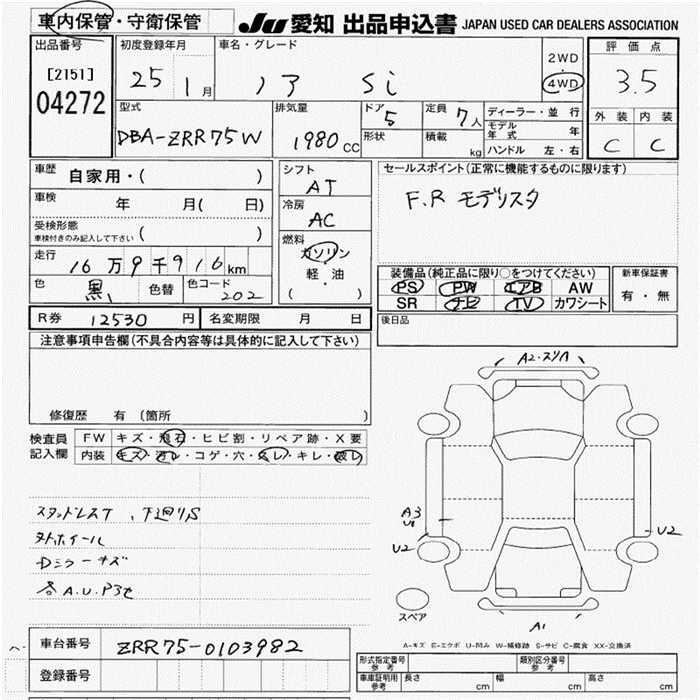 車内保管・守衛保管
JU 愛知 出品申込書 JAPAN USED CAR DEALERS ASSOCIATION
出品番号
[2151]
04272
初度登録年月
25 1月
車名・グレード
ノア Si
2WD
・
4WD
評価点
3.5
外装 内装
C C
型式
DBA-ZRR75W
排気量
1980 CC
ドア
5
形状
定員
7人
積載
kg
ディーラー・並行
モデル年式 年
ハンドル 左・右
車歴
自家用・( )
車検
年 月( 日)
受検形態
車検付きのみ記入して下さい ( )
走行
16万9千916km
色
黒
色替
色コード
202
シフト
AT
冷房
AC
燃料
ガソリン
・
軽・油
( )
セールスポイント(正常に機能するものに限ります)
F.R モデリスタ
装備品(純正品に限り○をつけてください)
PS PW エアB AW
SR ナビ TV カワシート
新車保証書
有・無
R券 12530 円
名変期限 月 日
後日品
注意事項申告欄(不具合内容等は具体的に記入して下さい)
修復歴 有(箇所 )
検査員
記入欄
FW キズ・飛石・ヒビ割・リペア跡・X要
内装 キズ・汚レ・コゲ・穴・スレ・キレ・破レ
スタッドレスT、下廻りS
外ホイール
Dミラーキズ
各A.U.P3セ
A2・スリハ
A3
U2
U2
A1
スペア
A-キズ E-エクボ U-凹み W-補修跡 S-サビ C-腐食 XX-交換済
車台番号
ZRR75-0103982
登録番号
形式指定番号
参考
類別区分番号
参考
車庫証明用
参考
長さ cm
幅 cm
高さ cm